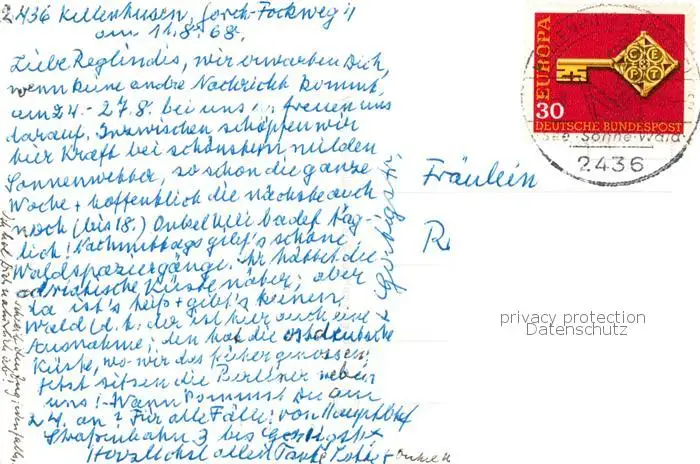 2436 Kellenhusen, Gorch-Fockweg 11
am 11.8.68.
Liebe Reglindis, wir erwarten Dich,
wenn keine andre Nachricht kommt,
am 24.-27.8. bei uns + freuen uns
darauf. Inzwischen schöpfen wir
hier Kraft bei schönstem milden
Sonnenwetter, so schon die ganze
Woche + hoffentlich die nächste auch
noch (bis 18.) Onkel Uli badet täg-
lich! Nachmittags gibt's schöne
Waldspaziergänge. Ihr hattet die
adriatische Küste näher; aber
da ist's heiß + gibt's keinen
Wald (d. h. der ist hier auch eine
Ausnahme; den hat die ostdeutsche
Küste, wo wir das früher genossen;
Jetzt sitzen die Berliner neben
uns! - Wann kommst Du am
24. an? Für alle Fälle: von Hauptbhf
Straßenbahn 3 bis Görtigstr.
Herzlichst allen Tante + Onkel U
Görtigstr.
Fräulein
R
EUROPA
CEPT
30
DEUTSCHE BUNDESPOST
See · Sonne · Wald
2436
privacy protection
Datenschutz